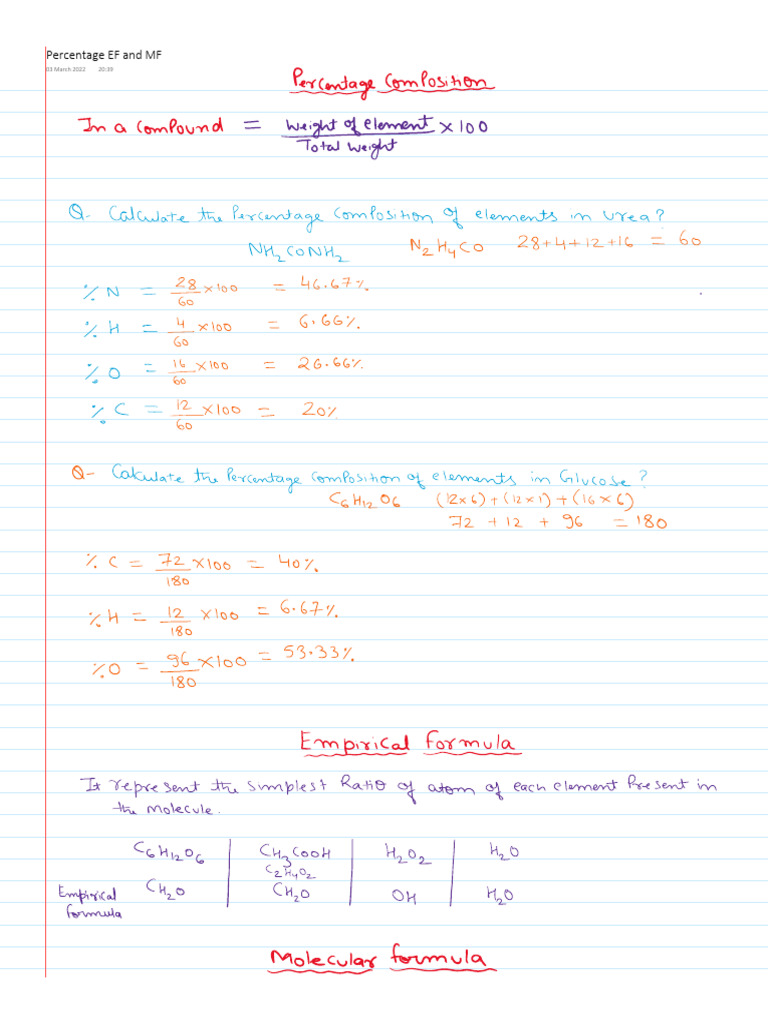 Percentage EF and MF
03 March 2022 20:39
Percentage Composition
In a Compound = Weight of element / Total weight × 100
Q- Calculate the Percentage Composition of elements in urea?
NH₂CONH₂ N₂H₄CO 28+4+12+16 = 60
% N = 28/60 ×100 = 46.67%
% H = 4/60 ×100 = 6.66%
% O = 16/60 ×100 = 26.66%
% C = 12/60 ×100 = 20%
Q- Calculate the Percentage Composition of elements in Glucose?
C₆H₁₂O₆ (12×6)+(12×1)+(16×6)
72 + 12 + 96 = 180
% C = 72/180 ×100 = 40%
% H = 12/180 ×100 = 6.67%
% O = 96/180 ×100 = 53.33%
Empirical Formula
It represent the simplest Ratio of atom of each element Present in
the molecule.
C₆H₁₂O₆ | CH₃COOH | H₂O₂ | H₂O
C₂H₄O₂
Empirical formula CH₂O | CH₂O | OH | H₂O
Molecular formula